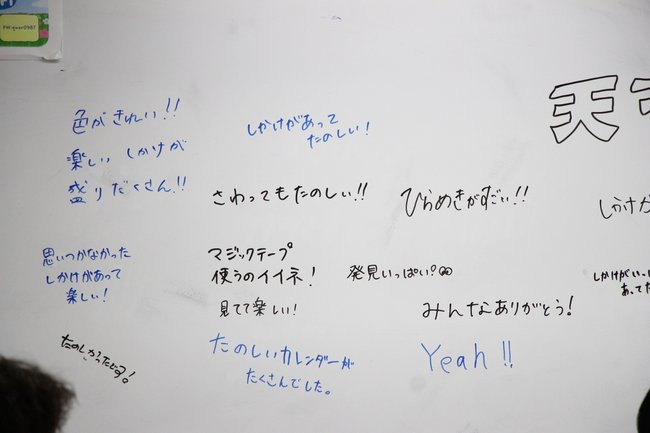 色がきれい!!
楽しい しかけが
盛りだくさん!!
しかけがあって
たのしい!
さわってもたのしい!!
ひらめきがすごい!!
しかけが
思いつかなかった
しかけがあって
楽しい!
マジックテープ
使うのイイネ!
発見いっぱい?
見てて楽しい!
みんなありがとう!
たのしいカレンダーが
たくさんでした。
Yeah!!
天